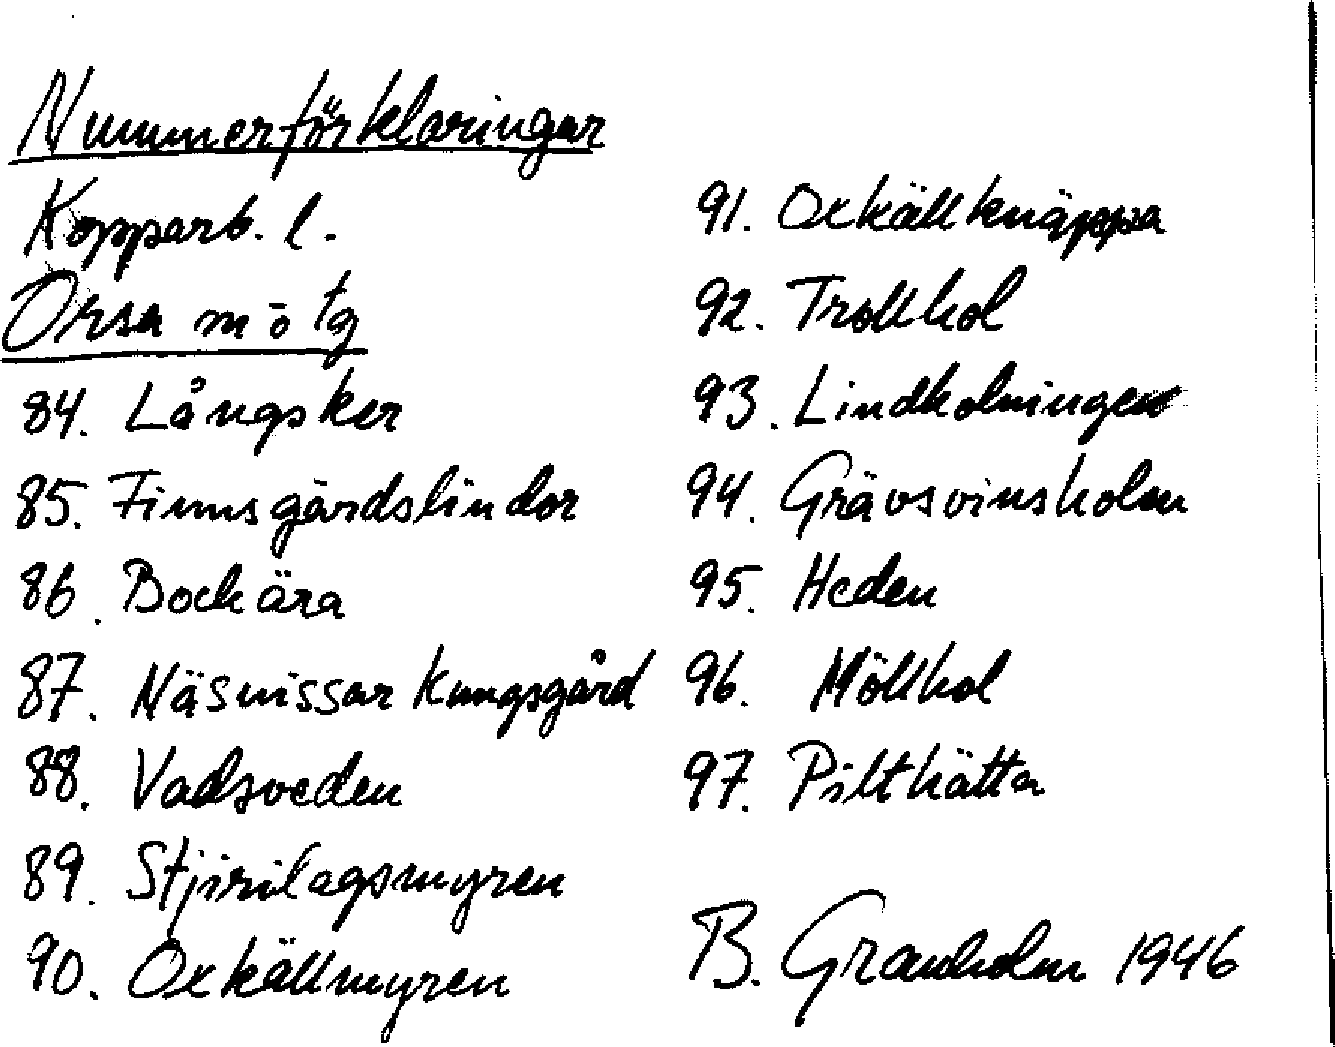 Nummerförklaringar
Kopparb. l.
Orsa m ö tg
84. Långsker
85. Finnsgärdslindor
86. Bockära
87. Näsnissar Kungsgård
88. Vadsveden
89. Stjirilagsmyren
90. Oxkällmyren
91. Oxkällknäppa
92. Trollhol
93. Lindholningen
94. Grävsvinsholm
95. Heden
96. Möllhol
97. Pilthätta
B. Granholm 1946